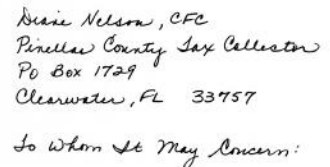 Diane Nelson, CFC
Pinellas County Tax Collector
PO Box 1729
Clearwater, FL 33757
To Whom It May Concern: